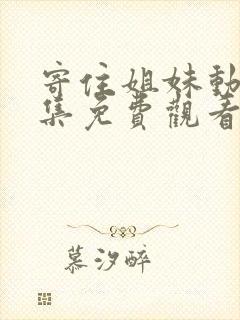 寄住姐妹動
集免費觀看
慕汐醉